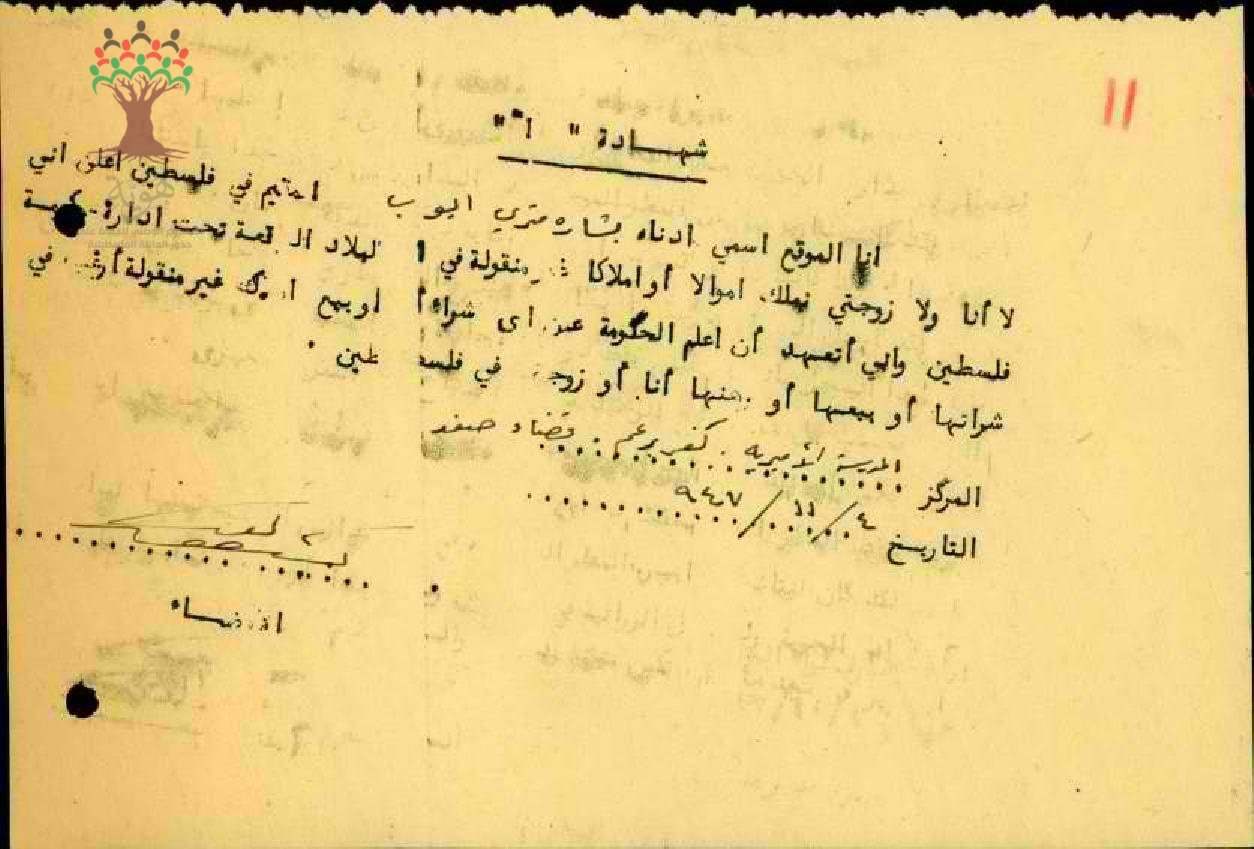 11
شهادة " أ "
انا الموقع اسمي ادناه بشاره متري ايوب المقيم في فلسطين اعلن اني
لا أنا ولا زوجتي نملك اموالا أو املاكا غير منقولة في البلاد الواقعة تحت ادارة حكومة
فلسطين واني أتعهد أن اعلم الحكومة عن أى شراء أو بيع املاك غير منقولة أرغب في
شرائها أو بيعها أو رهنها أنا أو زوجتي في فلسطين .
المركز المدرسة الأميرية . كفر برعم . قضاء صفد
التاريخ ٤ / ١١ / ٩٤٧
الامضاء
هوية